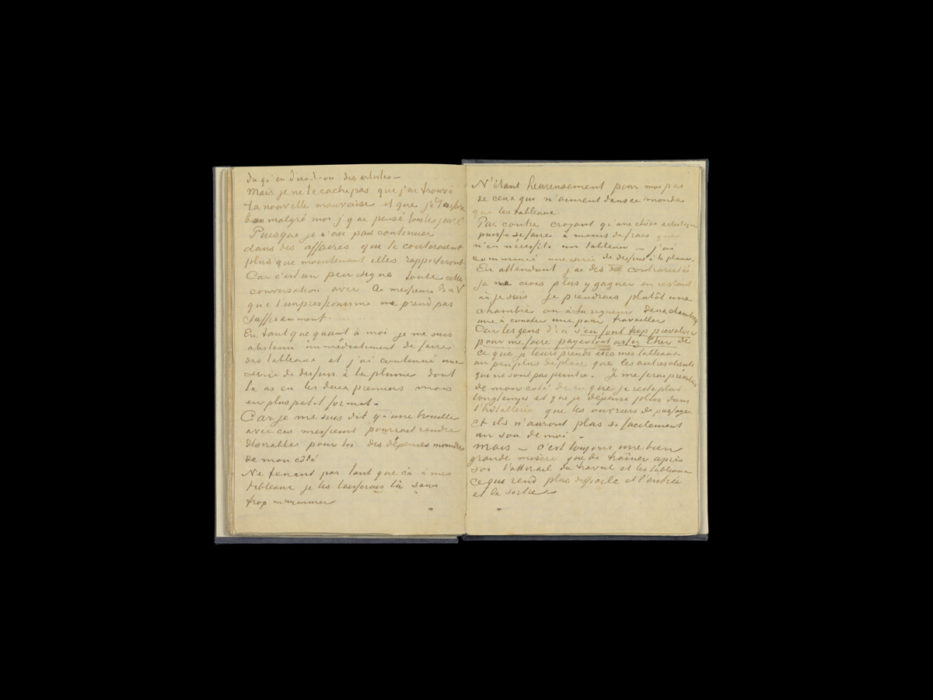 Mais je ne te cache pas que j'ai trouvé
ta nouvelle mauvaise et que
bien malgré moi j'y ai pensé tous les jours
Puisque je n'ose pas continuer
dans des affaires qui te couteraient
plus que maintenant elles rapportent.
Car c'est un peu signe toute cette
conversation avec ces messieurs B & V
que l'impressionisme ne prend pas
suffisamment.
En tant que quant à moi je me suis
abstenu immédiatement de faire
des tableaux et j'ai continué une
série de dessins à la plume dont
tu as eu les deux premiers mais
en plus petit format –
Car je me suis dit qu'une brouille
avec ces messieurs pourrait rendre
désirables pour toi des dépenses moindres
de mon coté
Ne tenant pas tant que ça à mes
tableaux je les laisserais là sans
trop murmurer
N'étant heureusement pour moi pas
de ceux qui n'aiment dans ce monde
que les tableaux
Par contre croyant qu'une chose artistique
puisse se faire à moins de frais que
n'en nécessite un tableau – j'ai
commencé une série de dessins à la plume.
En attendant j'ai des contrariétés
je ne crois plus y gagner en restant
où je suis je prendrais plutôt une
chambre ou à la rigueur deux chambres
une à coucher une pour travailler
Car les gens d'ici s'en font trop prévaloir
pour me faire payer tout assez cher de
ce que je leurs prends avec mes tableaux
un peu plus de place que les autres clients
qui ne sont pas peintres. Je me ferai prévaloir
de mon coté de ce que je reste plus
longtemps et que je dépense plus dans
l'hotellerie que les ouvriers de passage
et ils n'auront plus si facilement
un sou de moi –
Mais – c'est toujours une bien
grande misère que de trainer après
soi l'attirail du travail et les tableaux
ce qui rend plus difficile et l'entrée
et la sortie